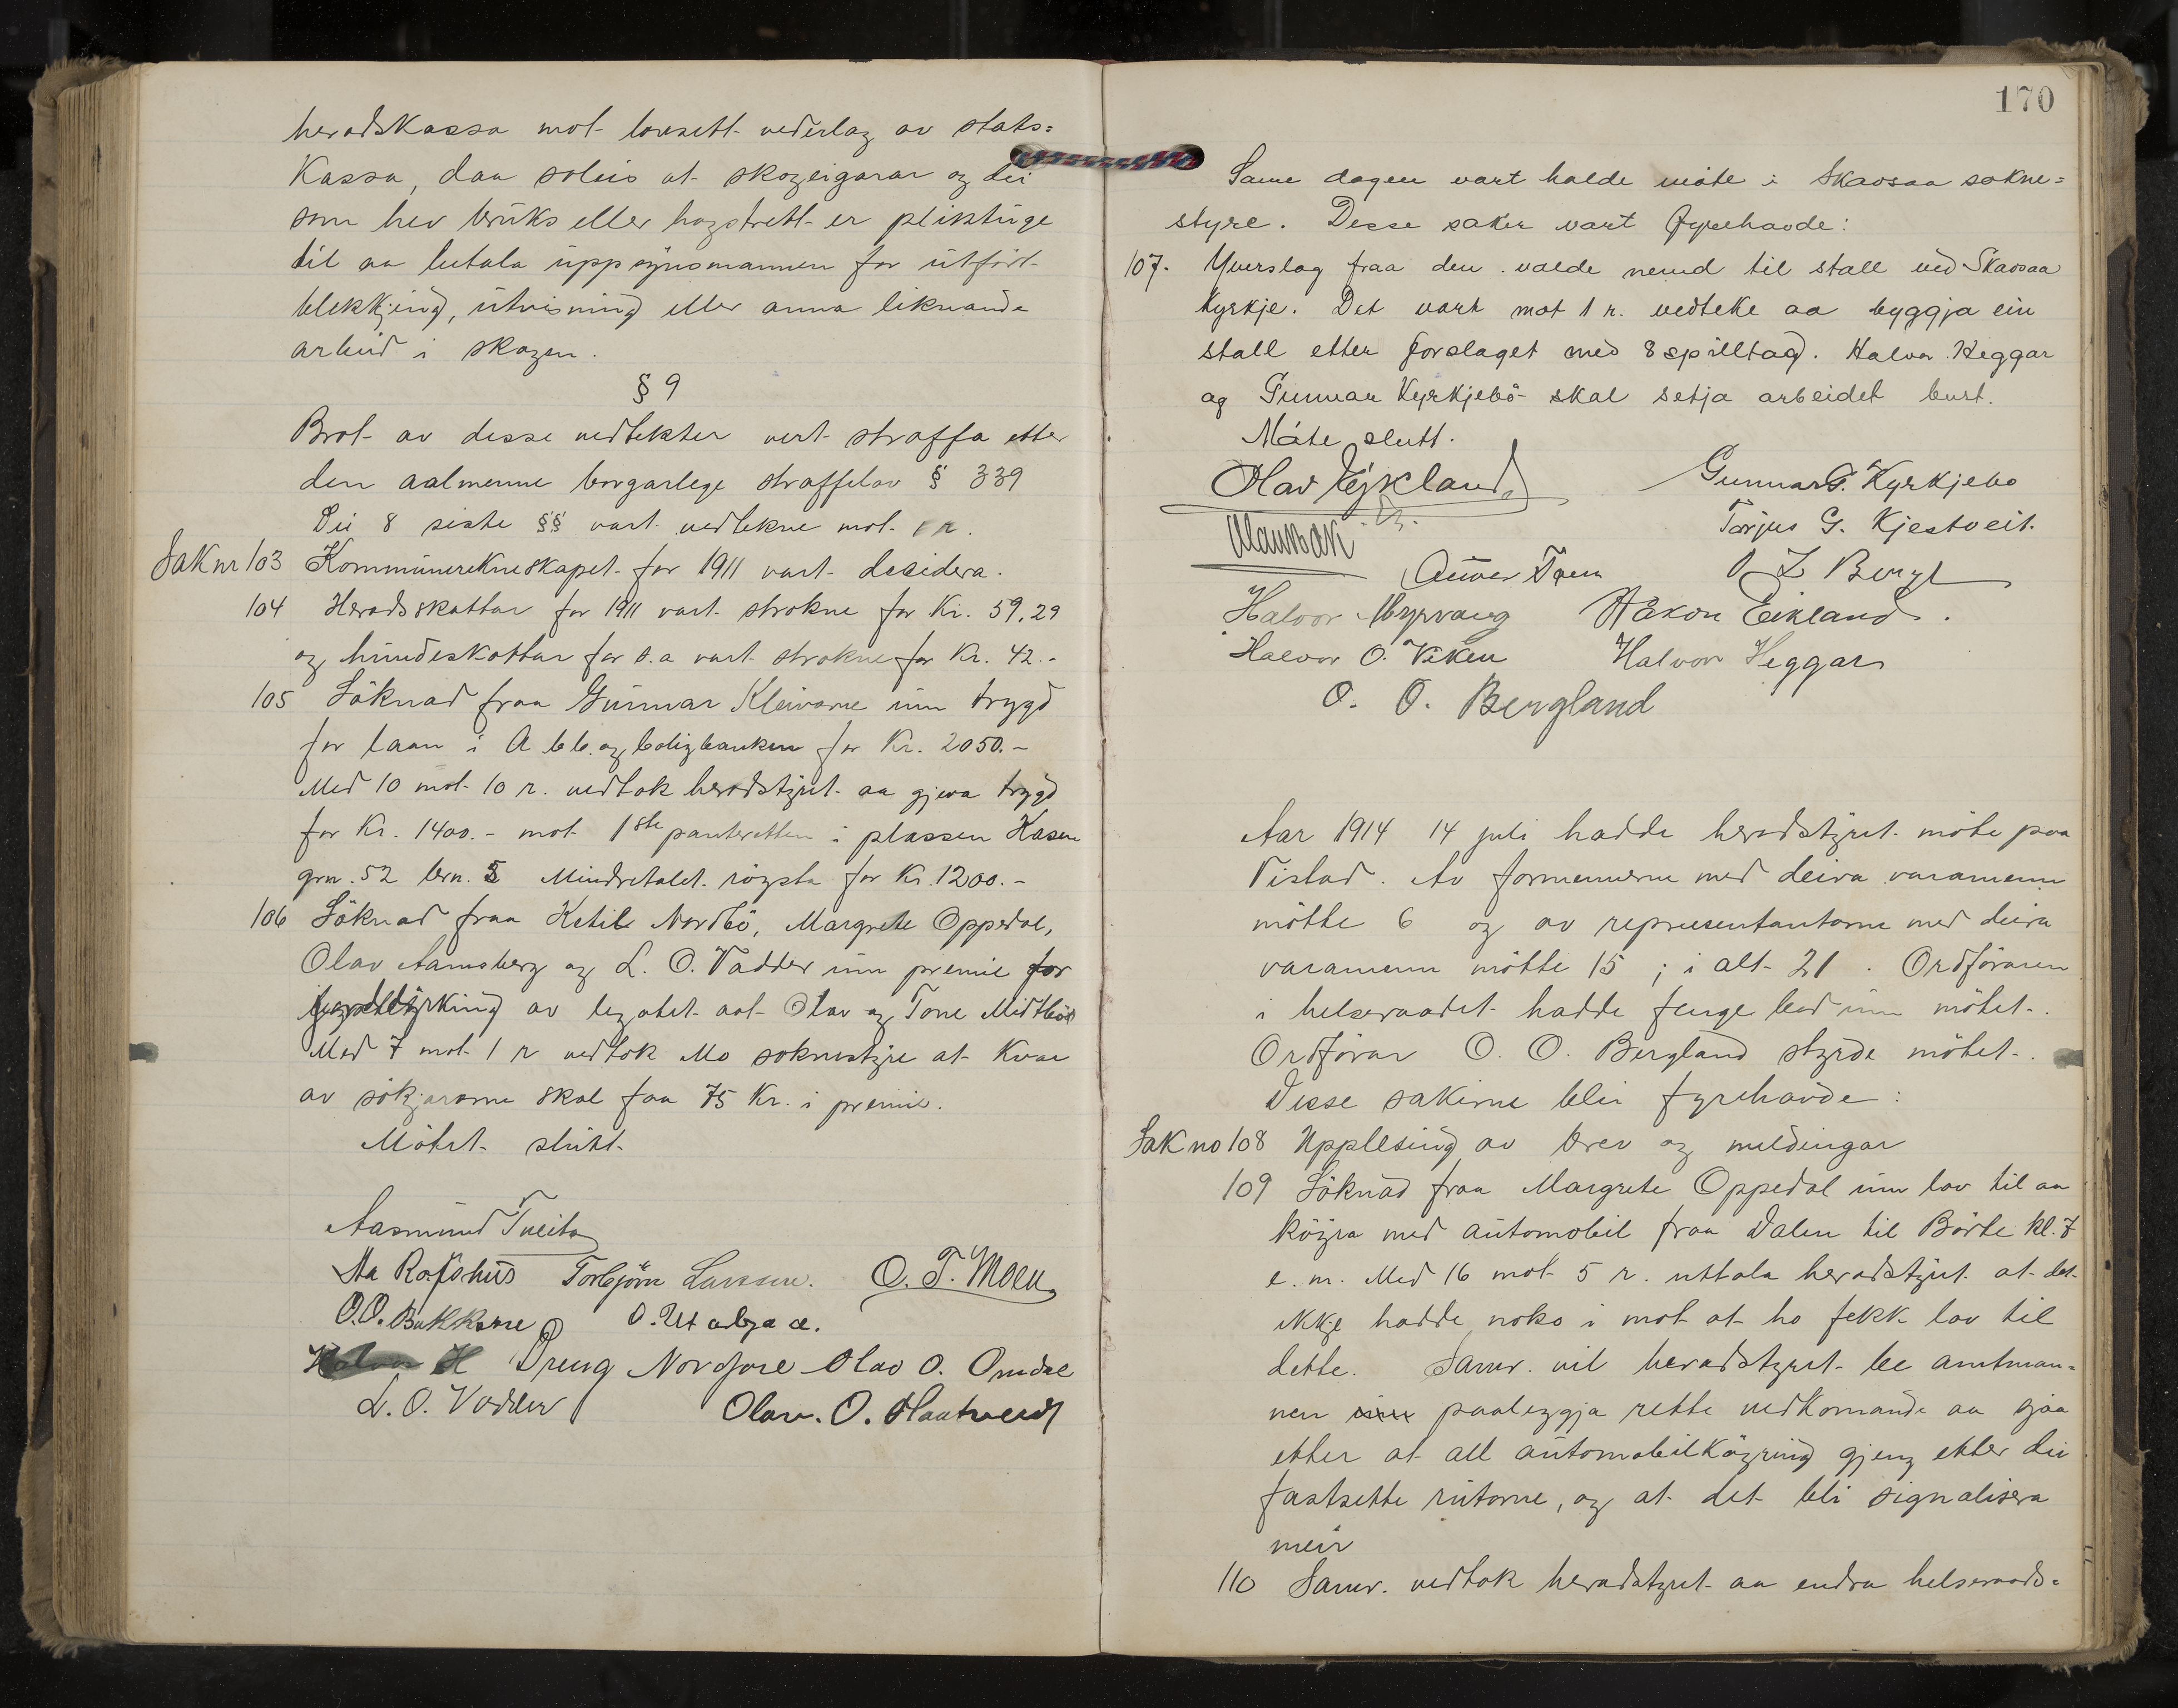 heradskassa mot lovsett vederlag av stats=
kassa, daa soleis at skogeigarar og dei
som hev bruks eller hogstrett er pliktuge
til aa betala uppsynsmannen for utfört
blekkjing, utvisning eller anna liknande
arbeid i skogen.
§ 9
Brot av desse vedtekter vert straffa etter
den aalmenne borgarlege straffelov § 339
Dei 8 siste §§ vart vedtekne mot 1 r.
Sak nr 103 Kommunerekneskapet for 1911 vart decidera.
104 Heradsskattar for 1911 vart strokne for Kr. 59.29
og hundeskattar for s.a vart strokne for Kr. 42.-
105 Söknad fraa Gunnar Kleivane um trygd
for laan i A bb. og boligbanken for Kr. 2050.-
Med 10 mot 10 r. vedtok heradstyret aa gjeva trygd
for Kr. 1400.- mot 1ste panteretten i plassen Kasen
grn. 52 brn. 5 Mindretalet röysta for Kr. 1200.-
106 Söknad fraa Ketil Nordbö, Margrete Oppedal,
Olav Aamsberg og L. O. Vadder um premie for
av legatet aat Olav og Tone Midtbö
Med 7 mot 1 r vedtok Mo soknestyre at kvar
av sökjarane skal faa 75 Kr. i premie.
Mötet slutt.
Aasmund Tveito
Aa Rafshus Torbjörn Larssen. O. T. Moen
O.O. Bakkane O. Utabjaa.
Halvor H Dreng Nordjore Olav O. Omdal
L. O. Vadder Olav. O. Hautveid
170
Same dagen vart halde möte i Skavsaa sokne=
styre. Desse saker vart fyrehavde:
107. Yverslag fraa den valde nemd til stall ved Skavsaa
kyrkje. Det vart mot 1 r. vedteke aa byggja ein
stall etter forslaget med 8 spilltog. Halvor Heggar
og Gunnar Kyrkjebö skal setja arbeidet burt.
Möte slutt.
Olav Eykland Gunnar G. Kyrkjebo
Tarjus G. Kjestveit.
Halvor Myrvang Håkon Eikland.
Halvor O. Viken Halvor Heggar
O. O. Bergland
Aar 1914 14 juli hadde heradstyret möte paa
Vistad. Av formennerne med deira varamenn
mötte 6 og av representantarne med deira
varamenn mötte 15 ; i alt 21 . Ordföraren
i helseraadet hadde fenge bod um mötet.
Ordförar O. O. Bergland styrde mötet.
Desse sakerne blei fyrehavde :
Sak no 108 Upplesing av brev og meldingar
109 Söknad fraa Margrete Oppedal um lov til aa
köyra med automobil fraa Dalen til Börte kl. 7
e. m. Med 16 mot 5 r. uttala heradstyret at det
ikkje hadde noko i mot at ho fekk lov til
dette. Samr. vil heradstyret be amtman=
nen paaleggja rette vedkomande aa sjaa
etter at all automobilköyring gjeng etter dei
fastsette rutorne, og at det bli signalisera
meir
110 Samr. vedtok heradstyret aa endra helseraads=